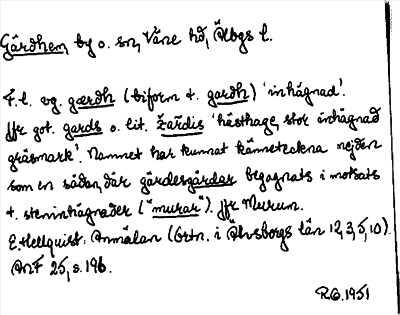 Gärdhem, by o. sn, Väne hd, Älvbgs l.
F.l. vg. gærdh (biform t. gardh) 'inhägnad'.
Jfr got. gards o. lit. žárdis 'hästhage, stor inhägnad
gräsmark'. Namnet har kunnat känneteckna nejden
som en sådan, där gärdesgårdar begagnats i motsats
t. steninhägnader ("murar"). Jfr Murum.
E. Hellquist: Anmälan (Ortn. i Älvsborgs län 12, 3, 5, 10).
ANF 25, s. 196.
R.G. 1951